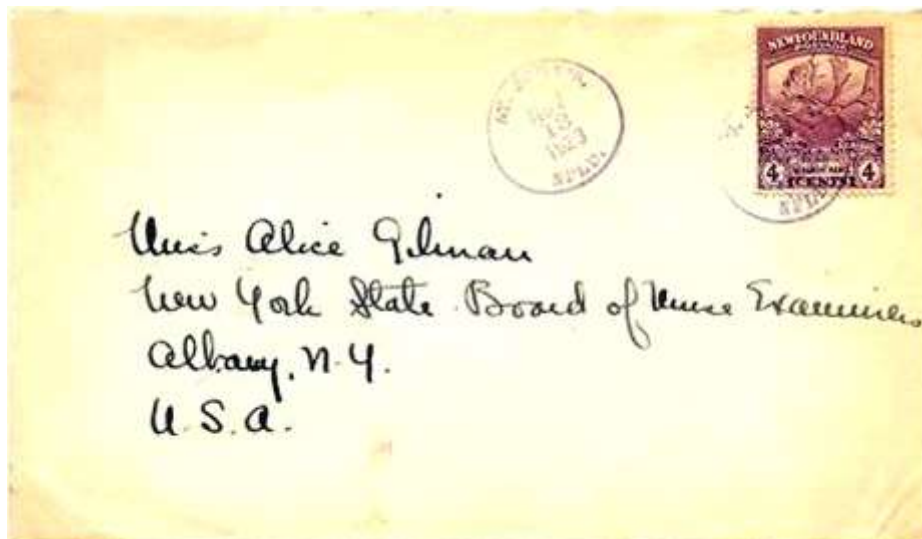 NEWFOUNDLAND
POSTAGE
4 4
CENTS
1923
NFLD.
NFLD.
Miss Alice Gilman
New York State Board of Nurse Examiners
Albany, N.Y.
U.S.A.